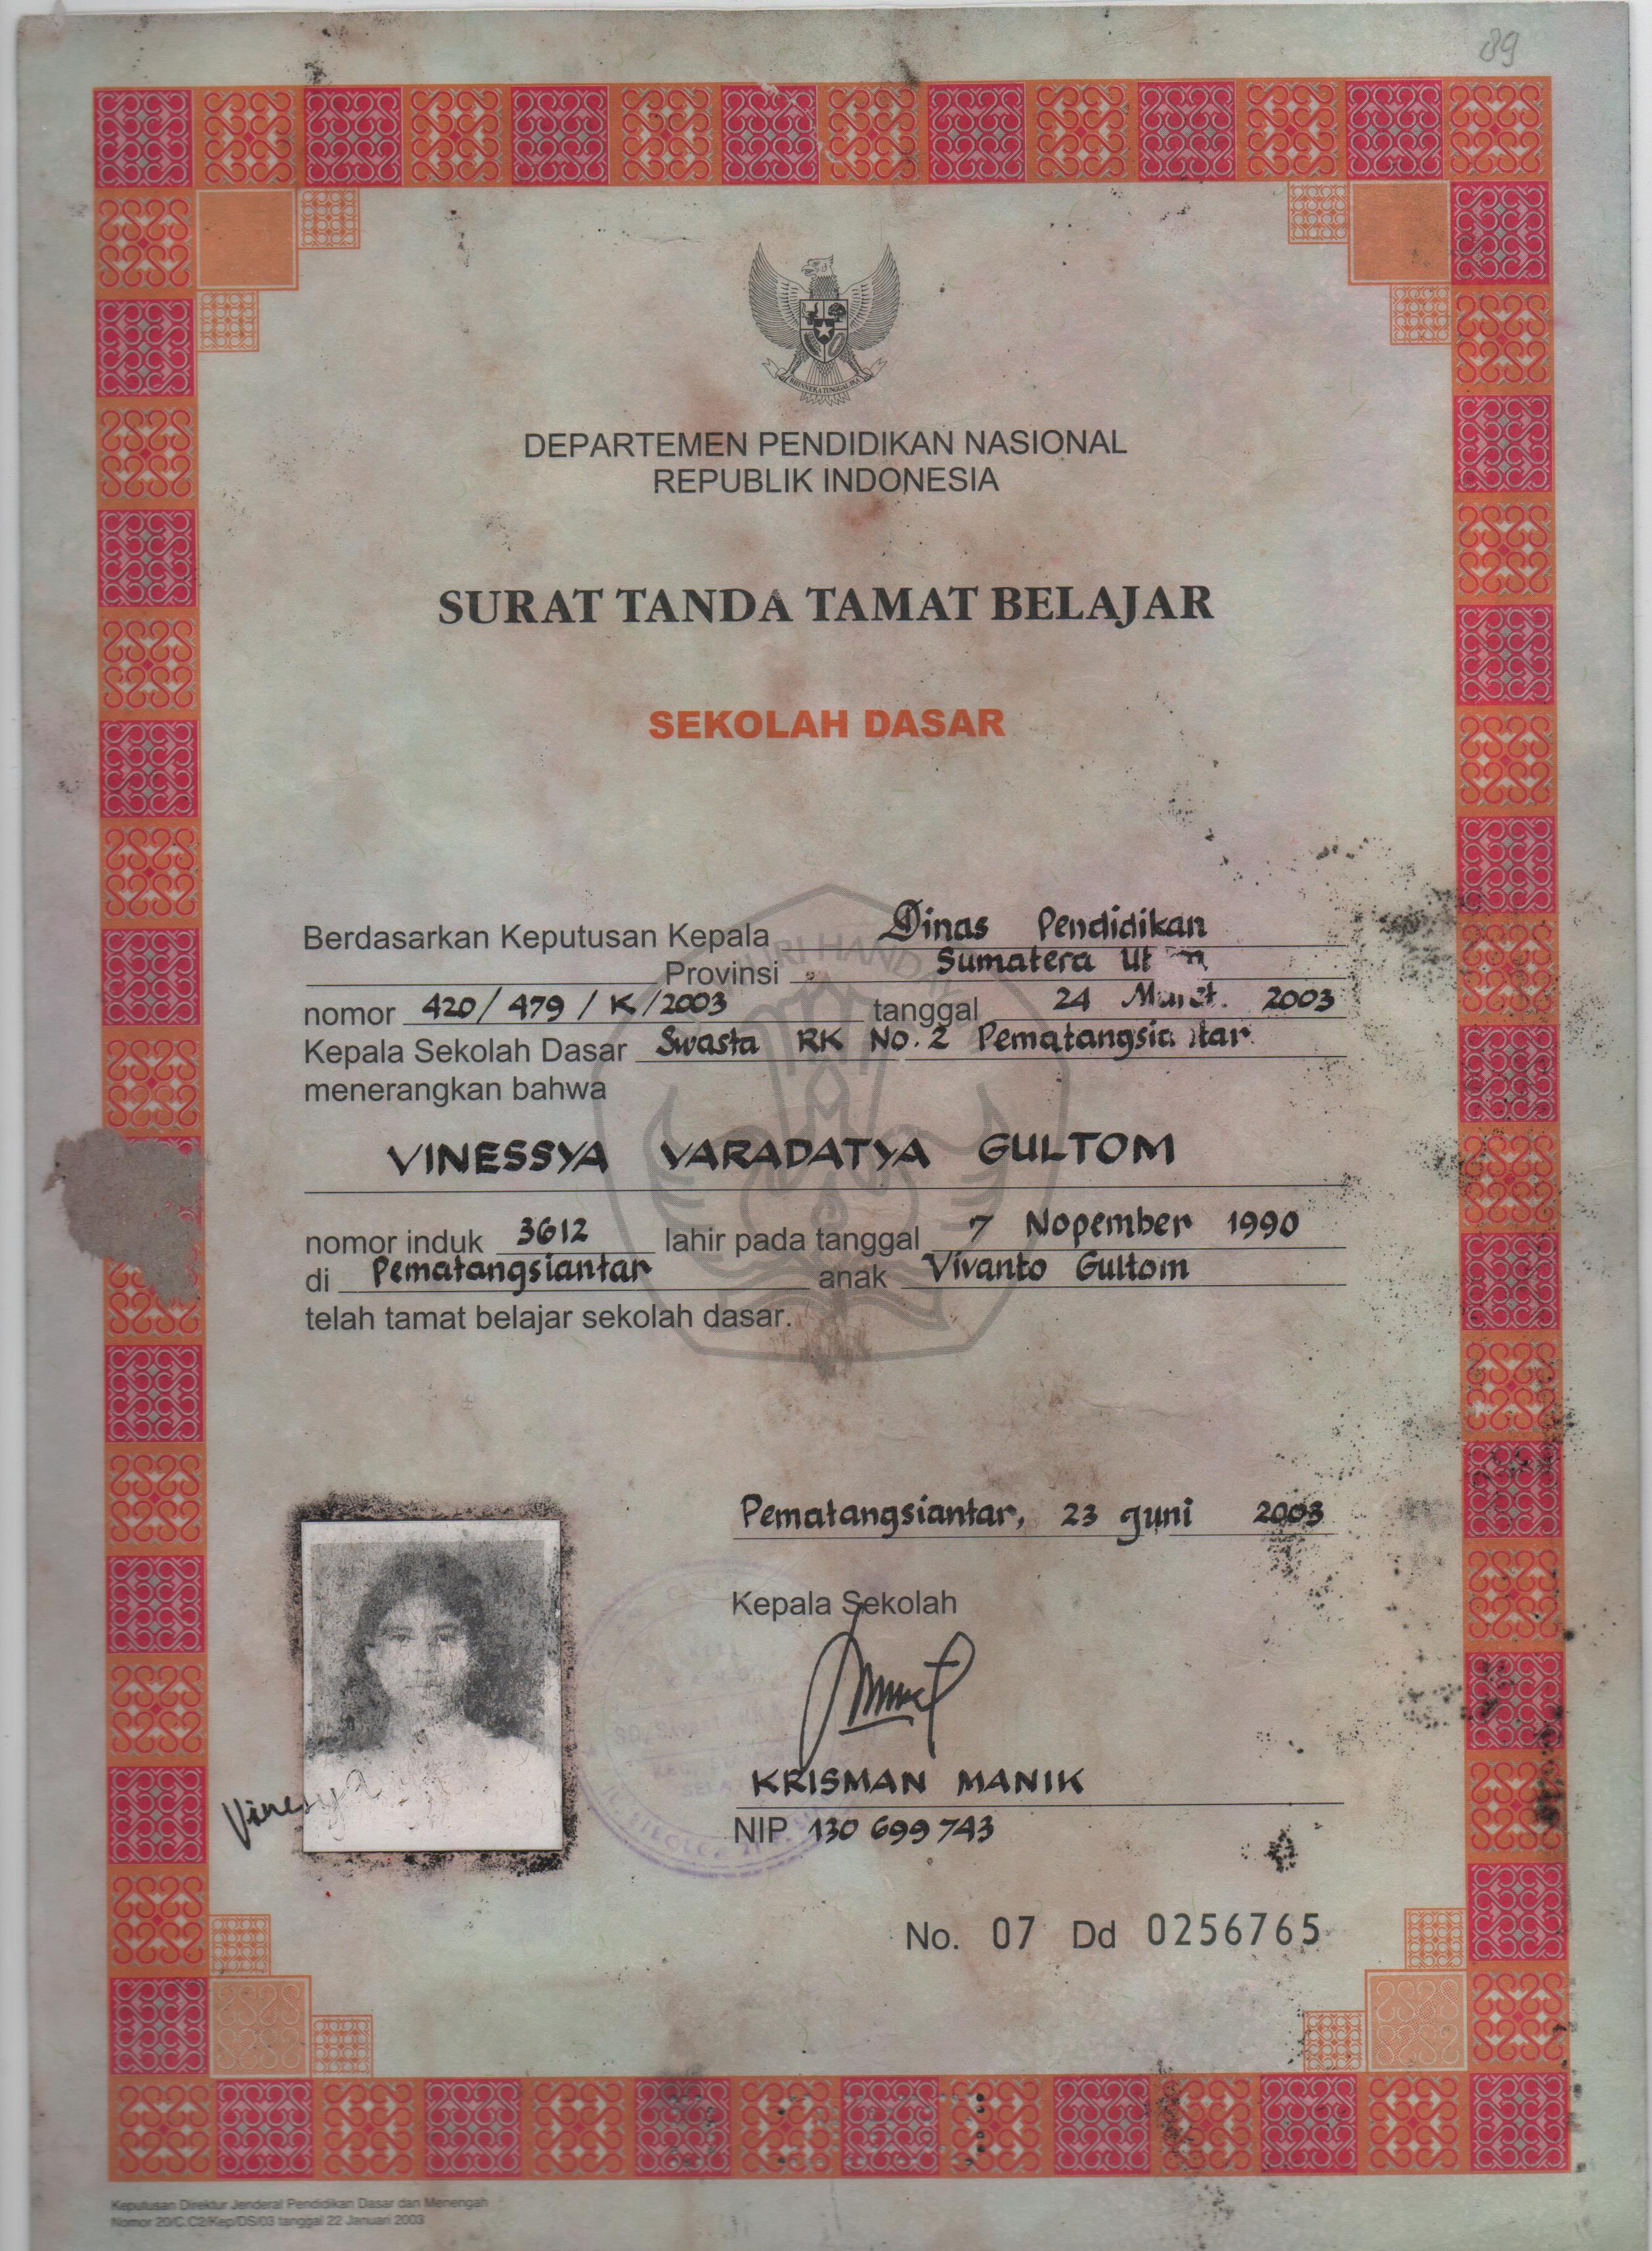 89
BHINNEKA TUNGGAL IKA
DEPARTEMEN PENDIDIKAN NASIONAL
REPUBLIK INDONESIA
SURAT TANDA TAMAT BELAJAR
SEKOLAH DASAR
Berdasarkan Keputusan Kepala Dinas Pendidikan
Provinsi Sumatera
nomor 420/479/K/2003 tanggal 24 Maret. 2003
Kepala Sekolah Dasar Swasta RK No.2 Pematangsiantar
menerangkan bahwa
VINESSYA VARADATYA GULTOM
nomor induk 3612 lahir pada tanggal 7 Nopember 1990
di Pematangsiantar anak Vivanto Gultom
telah tamat belajar sekolah dasar.
Pematangsiantar, 23 Juni 2003
Kepala Sekolah
Vinessya
KRISMAN MANIK
NIP 130 699 743
No. 07 Dd 0256765
Keputusan Direktur Jenderal Pendidikan Dasar dan Menengah
Nomor 20/C.C2/Kep/DS/03 tanggal 22 Januari 2003